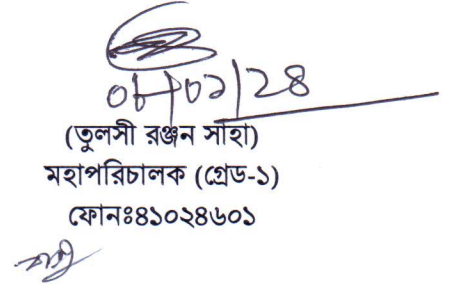 ০৮/০১/২৪
(তুলসী রঞ্জন সাহা)
মহাপরিচালক (গ্রেড-১)
ফোনঃ৪১০২৪৬০১